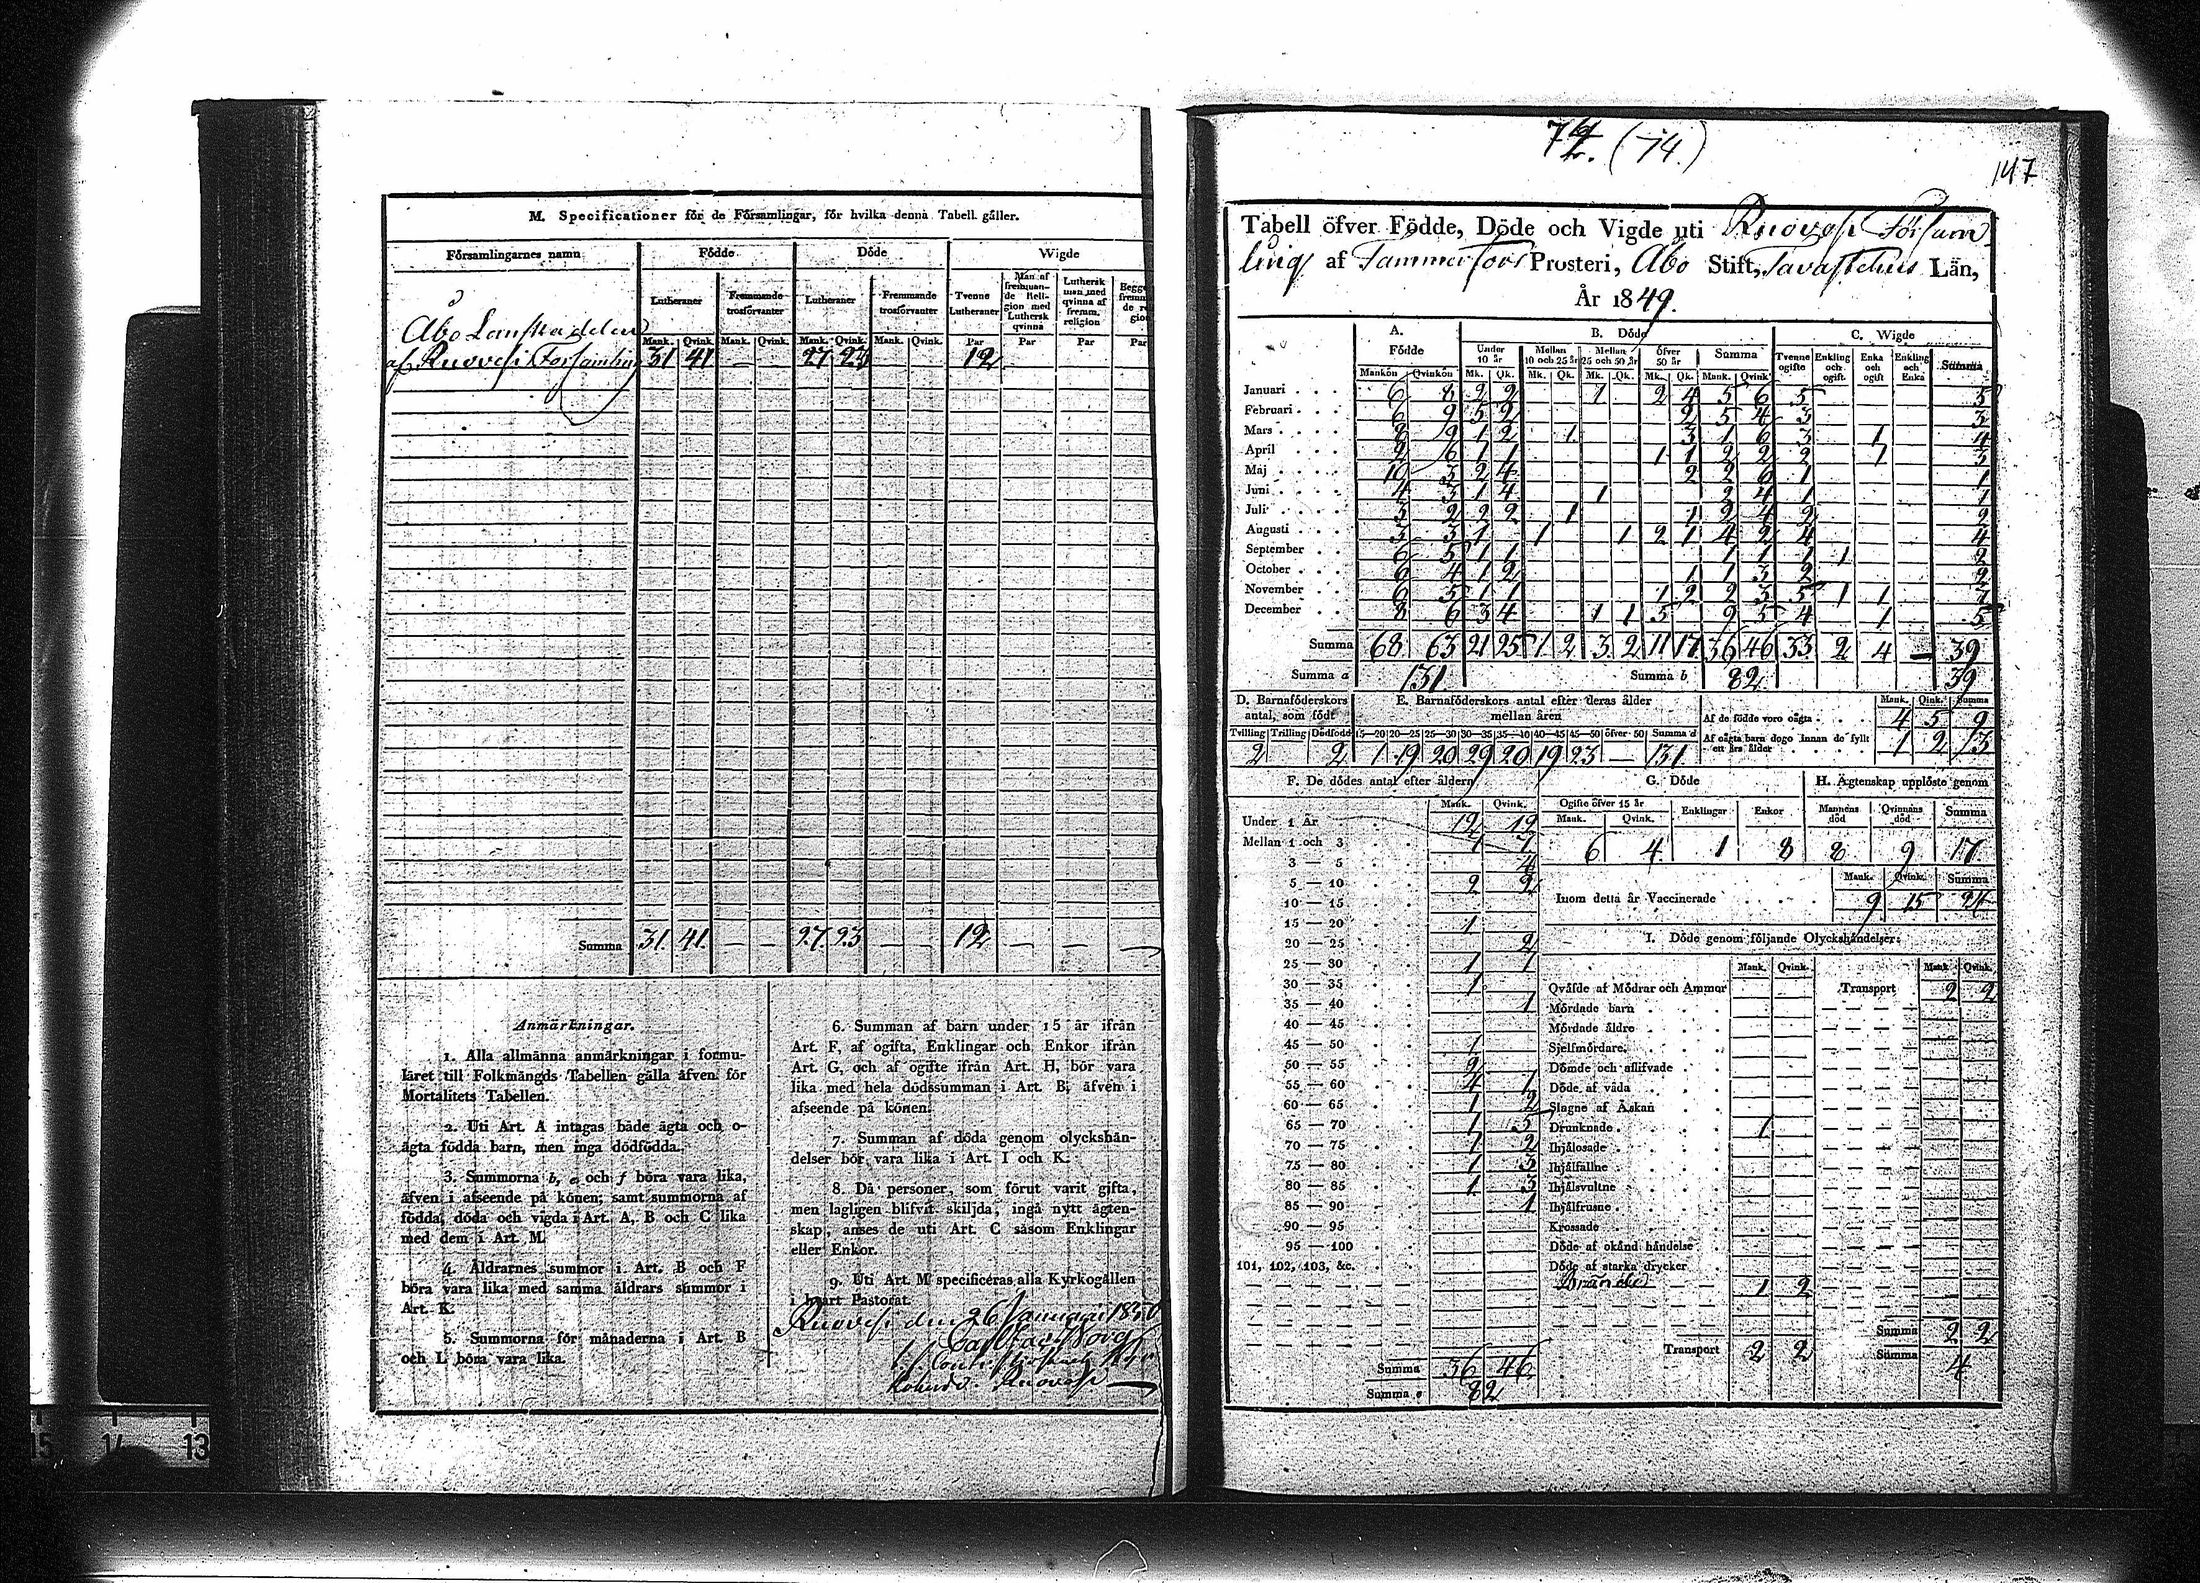 M. Specificationer för de Församlingar, för hvilka denna Tabell gäller.
Församlingarnes namn
Födde
Döde
Wigde
Lutheraner
Fremmande trosförvanter
Lutheraner
Fremmande trosförvanter
Tvenne Lutheraner
Man af fremmande Religion med Luthersk qvinna
Luthersk man med qvinna af fremm. religion
Mank. Qvink. Mank. Qvink. Mank. Qvink. Mank. Qvink. Par Par Par Par
Åbo Länsträdelen
af Ruovesi Församling 31 41 — — 27 23 — — 12
Summa 31. 41. — — 27 23 — — 12 — — —
Anmärkningar.
1. Alla allmänna anmärkningar i formu-
läret till Folkmängds Tabellen gälla äfven för
Mortalitets Tabellen.
2. Uti Art. A intagas både ägta och o-
ägta födda barn, men inga dödfödda.
3. Summorna b, e och f böra vara lika,
äfven i afseende på könen; samt summorna af
födda, döda och vigda i Art. A, B och C lika
med dem i Art. M.
4. Åldrarnes summor i Art. B och F
böra vara lika med samma åldrars summor i
Art. K.
5. Summorna för månaderna i Art. B
och L böra vara lika.
6. Summan af barn under 15 år ifrån
Art. F, af ogifta, Enklingar och Enkor ifrån
Art. G, och af ogifte ifrån Art. H, bör vara
lika med hela dödssumman i Art. B; äfven i
afseende på könen.
7. Summan af döda genom olyckshän-
delser bör vara lika i Art. I och K.
8. Då personer, som förut varit gifta,
men lagligen blifvit skiljda, ingå nytt ägten-
skap, anses de uti Art. C såsom Enklingar
eller Enkor.
9. Uti Art. M specificeras alla Kyrkogällen
i hvart Pastorat.
Ruovesi den 26 Januari 1850
147
Tabell öfver Födde, Döde och Vigde uti Ruovesi Försam
ling af Tammerfors Prosteri, Åbo Stift, Tavastehus Län,
År 1849.
A. Födde
B. Döde
C. Wigde
Under 10 år
Mellan 10 och 25 år
Mellan 25 och 50 år
öfver 50 år
Summa
Tvenne ogifte
Enkling och ogift.
Enka och ogift
Enkling och Enka
Summa
Mankön Qvinkön Mk. Qk. Mk. Qk. Mk. Qk. Mk. Qk. Mank. Qvink.
Januari 6 8 2 2 1 2 4 5 6 5 5
Februari 6 9 5 2 2 5 4 3 3
Mars 8 9 1 2 1 3 1 6 3 1 4
April 2 6 1 1 1 1 2 2 2 1 3
Maj 10 3 2 4 2 2 6 1 1
Juni 4 3 1 4 1 2 4 1 1
Juli 3 2 2 2 1 1 2 4 2 2
Augusti 3 3 1 1 1 2 1 4 2 4 4
September 6 5 1 1 1 1 1 1 2
October 6 4 1 2 1 1 3 2 2
November 6 5 1 1 1 2 2 3 5 1 1 7
December 8 6 3 4 1 1 5 9 5 4 1 5
Summa 68 63 21 25 1 2 3 2 11 17 36 46 33 2 4 — 39
Summa a 131 Summa b 82 39
D. Barnaföderskors antal, som födt
Tvilling Trilling Dödfödd
2 2
E. Barnaföderskors antal efter deras ålder mellan åren
15—20 20—25 25—30 30—35 35—40 40—45 45—50 öfver 50 Summa d
1 19 20 29 20 19 23 — 131
Mank. Qink. Summa
Af de födde voro oägta 4 5 9
Af oägta barn dogo innan de fyllt ett års ålder 1 2 3
F. De dödes antal efter åldern
Mank. Qvink.
Under 1 År 12 12
Mellan 1 och 3 7 7
3 — 5 4
5 — 10 2 2
10 — 15
15 — 20 1
20 — 25 2
25 — 30 1 1
30 — 35 1
35 — 40 1
40 — 45
45 — 50 1
50 — 55 2
55 — 60 4 1
60 — 65 1 2
65 — 70 1 5
70 — 75 1 2
75 — 80 1 3
80 — 85 1 3
85 — 90 1
90 — 95
95 — 100
101, 102, 103, &c.
Summa 36 46
Summa e 82
G. Döde
Ogifte öfver 15 år
Mank. Qvink. Enklingar Enkor
6 4 1 8
H. Ägtenskap upplöste genom
Mannens död Qvinnans död Summa
8 9 17
Mank. Qvink. Summa
Inom detta år Vaccinerade 9 15 24
I. Döde genom följande Olyckshändelser:
Mank. Qvink. Mank. Qvink.
Qväfde af Mödrar och Ammor Transport 2 2
Mördade barn
Mördade äldre
Sjelfmördare
Dömde och aflifvade
Döde af våda
Slagne af Åskan
Drunknade 1
Ihjälosade
Ihjälfallne
Ihjälsvultne
Ihjälfrusne
Krossade
Döde af okänd händelse
Döde af starka drycker
Brände 1 2
Transport 2 2
Summa 2 2
Summa 4